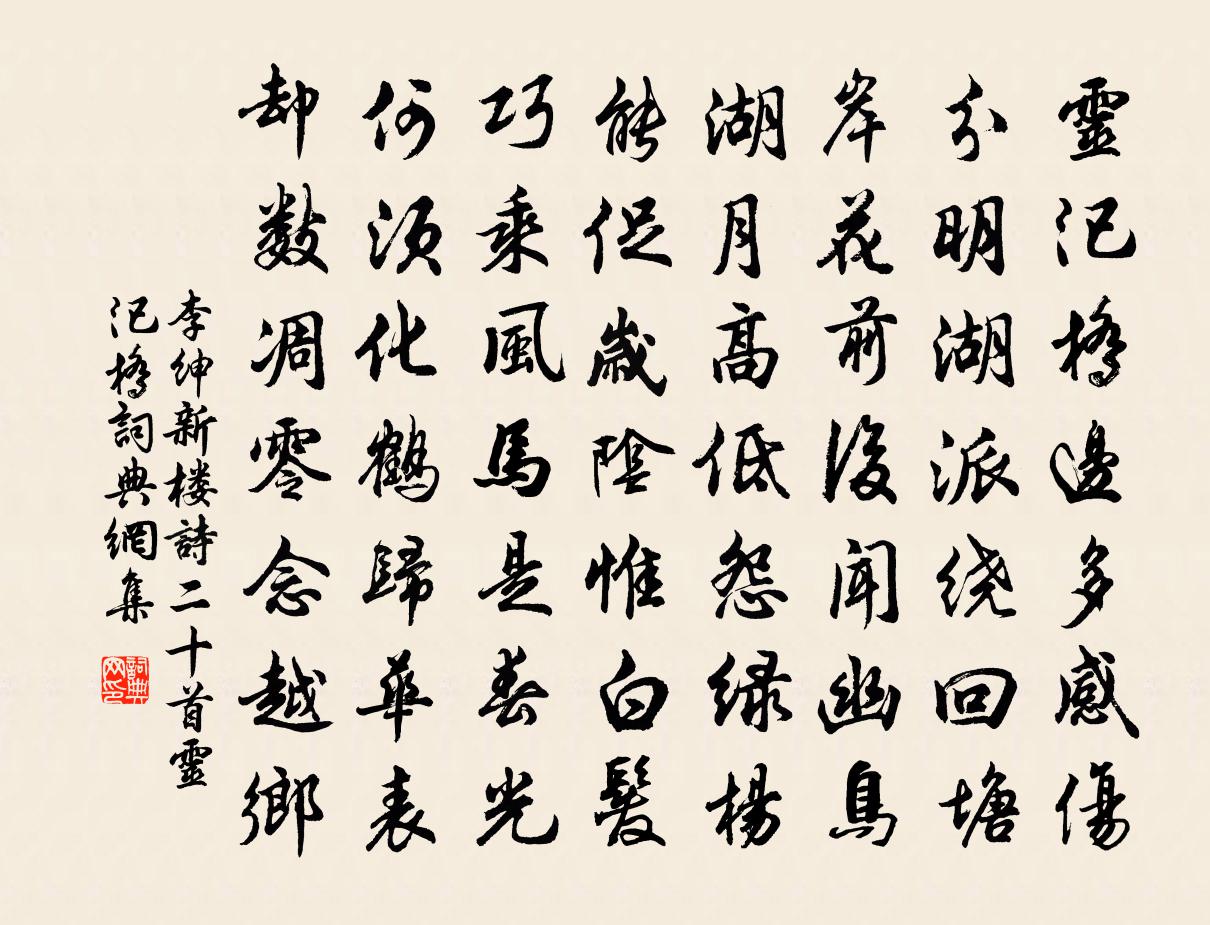 靈汜橋邊多感傷
分明湖派绕回塘
岸花前後聞幽鳥
湖月高低怨绿楊
能促歲陰惟白髮
巧乘風馬是春光
何須化鶴歸華表
却數凋零念越鄉
李紳新楼詩二十首靈
汜橋詞典網集
詞典
网印